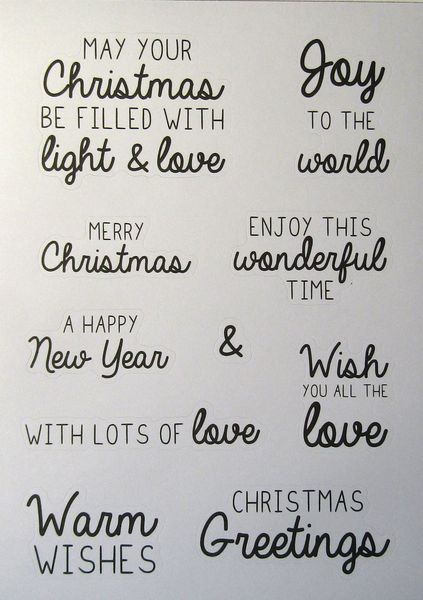 MAY YOUR
Christmas
BE FILLED WITH
light & love
Joy
TO THE
world
MERRY
Christmas
ENJOY THIS
wonderful
TIME
A HAPPY
New Year
&
Wish
YOU ALL THE
love
WITH LOTS OF love
Warm
WISHES
CHRISTMAS
Greetings